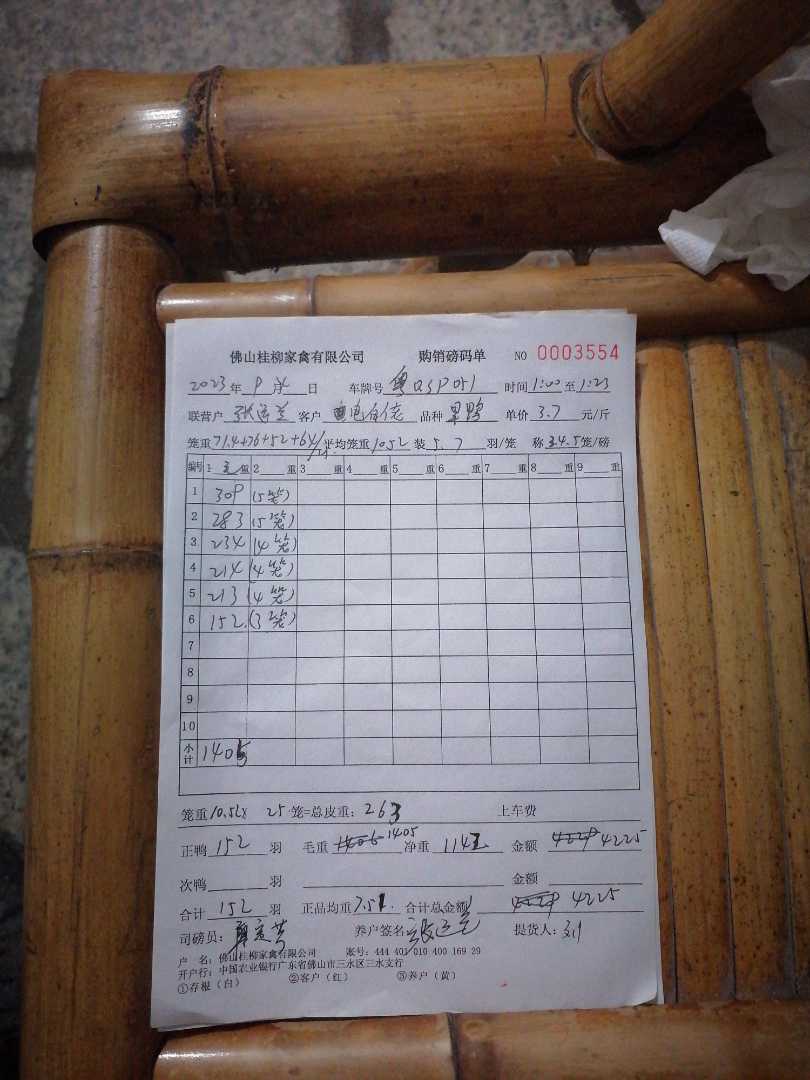 佛山桂柳家禽有限公司 购销磅码单 NO 0003554
2023年 9月 日 车牌号 粤 时间 1:00 至 1:23
联营户 张 客户 品种 单价 3.7 元/斤
笼重 71.4+76+52+64/25 平均笼重 10.52 装 5.7 羽/笼 称 3.4.5笼/磅
编号 1 重 2 重 3 重 4 重 5 重 6 重 7 重 8 重 9 重
1 309 (5笼)
2 283 (5笼)
3 234 (4笼)
4 214 (4笼)
5 213 (4笼)
6 152 (3笼)
7
8
9
10
小计 1405
笼重 10.52x 25 笼=总皮重: 263 上车费
正鸭 152 羽 毛重 1405 净重 1142 金额 4225
次鸭 羽 金额
合计 152 羽 正品均重 7.51 合计总金额 4225
司磅员: 养户签名 提货人:
户 名: 佛山桂柳家禽有限公司 账号: 444 401 010 400 169 29
开户行: 中国农业银行广东省佛山市三水区三水支行
①存根(白) ②客户(红) ③养户(黄)